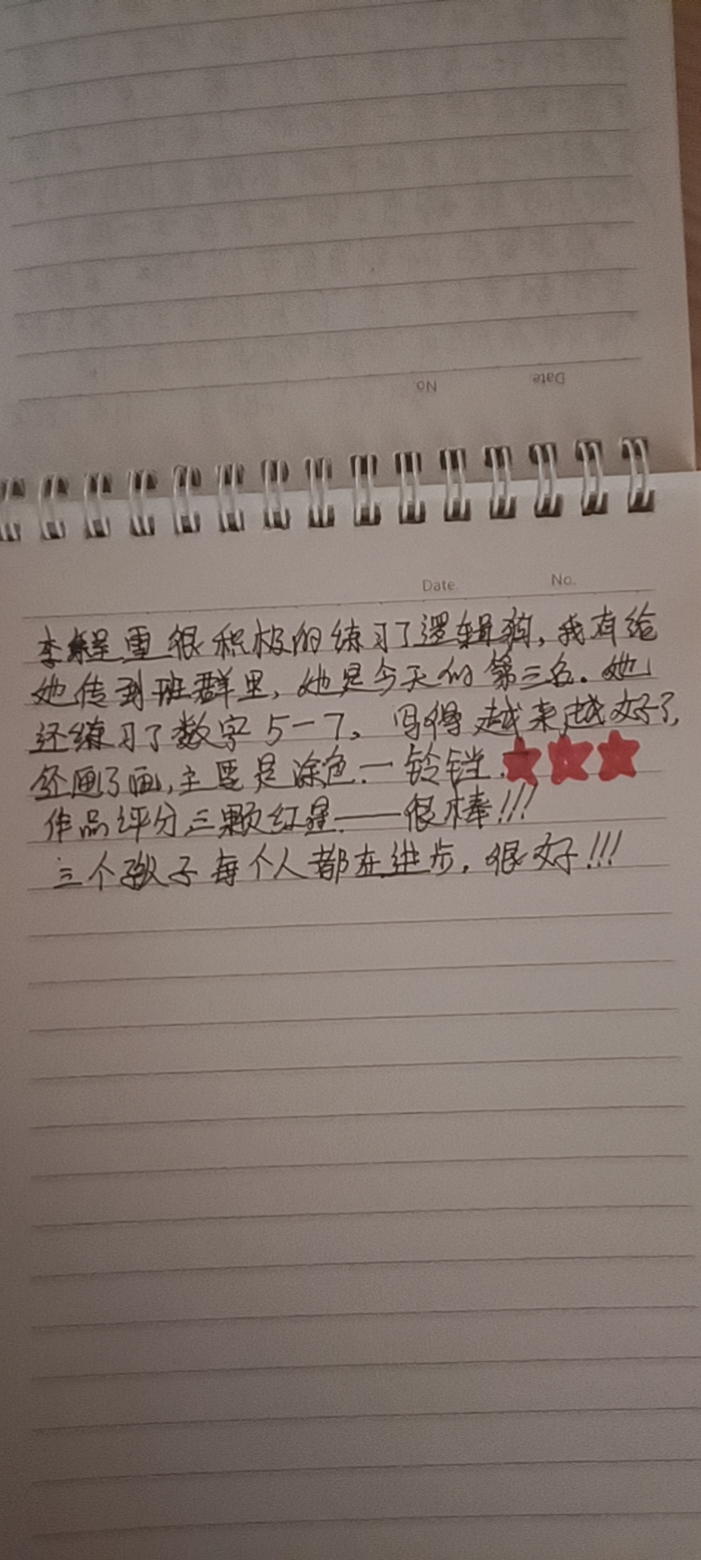 No
Date
Date
No.
李雪很积极的练习了逻辑狗,我有给
她传到班群里,她是今天的第三名.她
还练习了数字5-7。写得越来越好了,
画了画,主要是涂色.一铃铛.
作品评分三颗红星——很棒!!!
三个孩子每个人都在进步,很好!!!